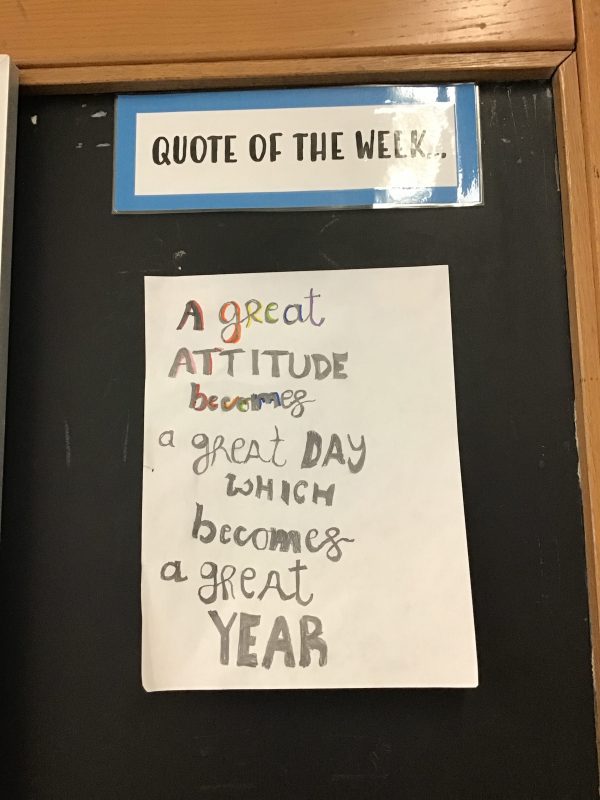 QUOTE OF THE WEEK...
A great
ATTITUDE
becomes
a great DAY
WHICH
becomes
a great
YEAR